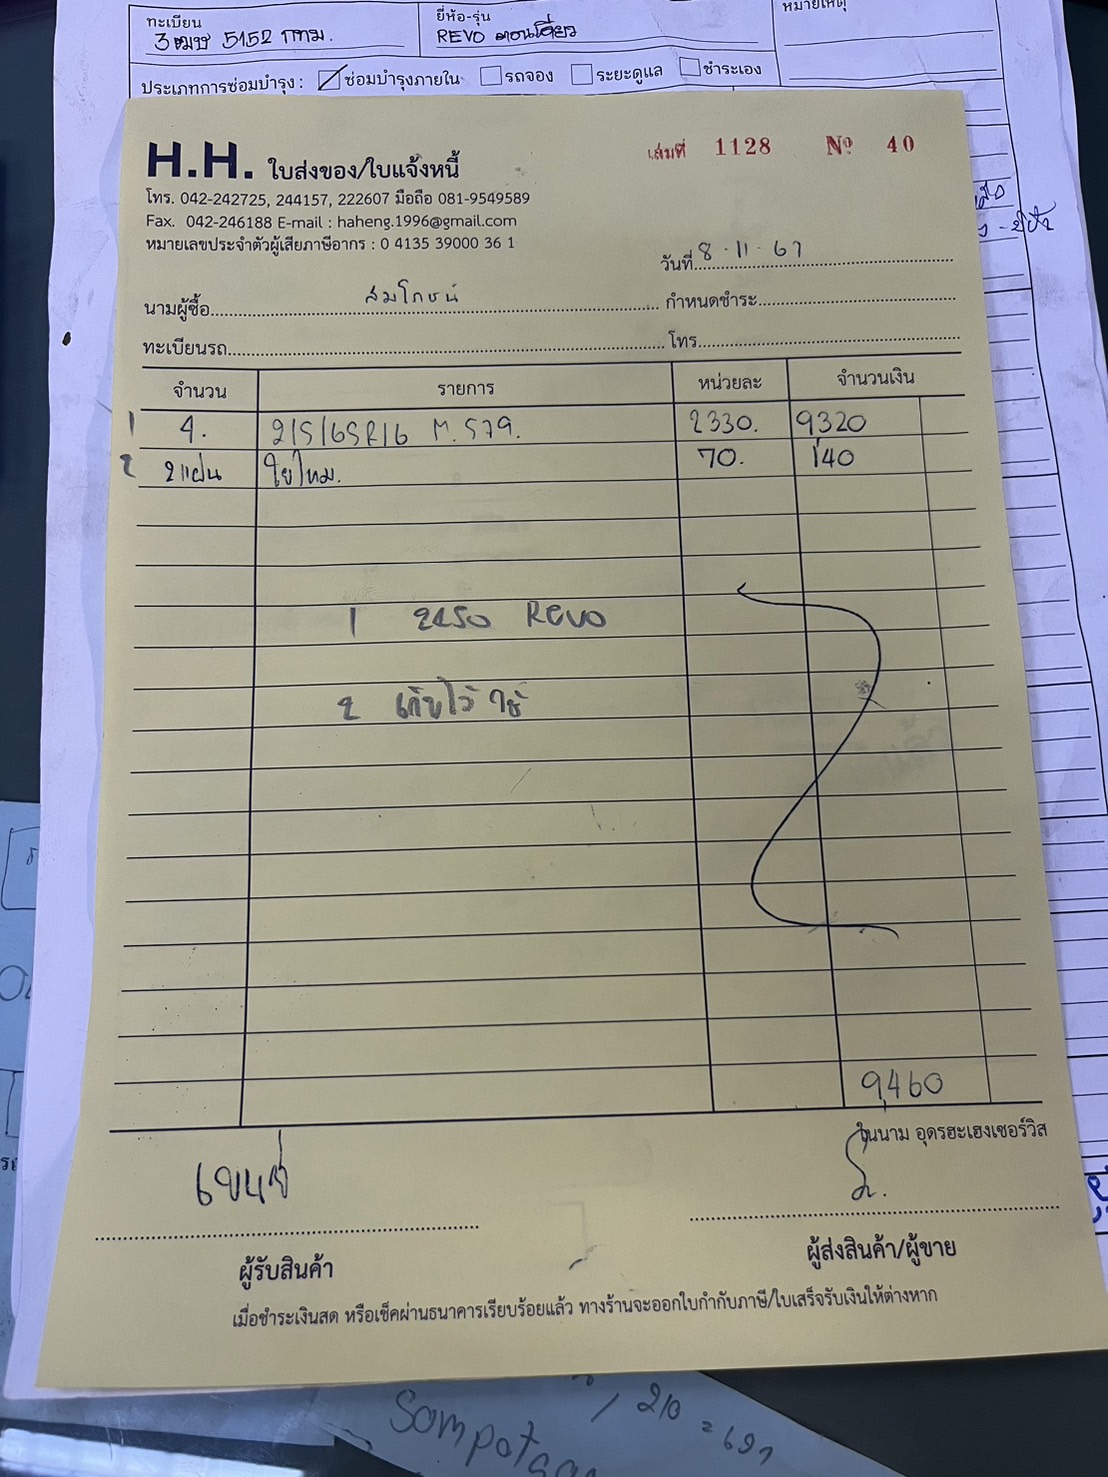 ทะเบียน ยี่ห้อ-รุ่น หมายเหตุ
5152 กทม. REVO ตอนเดียว
ประเภทการซ่อมบำรุง : ซ่อมบำรุงภายใน รถจอง ระยะดูแล ชำระเอง
H.H. ใบส่งของ/ใบแจ้งหนี้ เล่มที่ 1128 Nº 40
โทร. 042-242725, 244157, 222607 มือถือ 081-9549589
Fax. 042-246188 E-mail : haheng.1996@gmail.com
หมายเลขประจำตัวผู้เสียภาษีอากร : 0 4135 39000 36 1
วันที่ 8-11-67
นามผู้ซื้อ สมโภชน์ กำหนดชำระ
ทะเบียนรถ โทร.
จำนวน รายการ หน่วยละ จำนวนเงิน
1 4. 215/65R16 M.579. 2330. 9320
2 2แผ่น ใยไหม. 70. 140
1 2450 REVO
2 เก็บไว้ใช้
9,460
ในนาม อุดรฮะเฮงเซอร์วิส
ผู้รับสินค้า ผู้ส่งสินค้า/ผู้ขาย
เมื่อชำระเงินสด หรือเช็คผ่านธนาคารเรียบร้อยแล้ว ทางร้านจะออกใบกำกับภาษี/ใบเสร็จรับเงินให้ต่างหาก
210